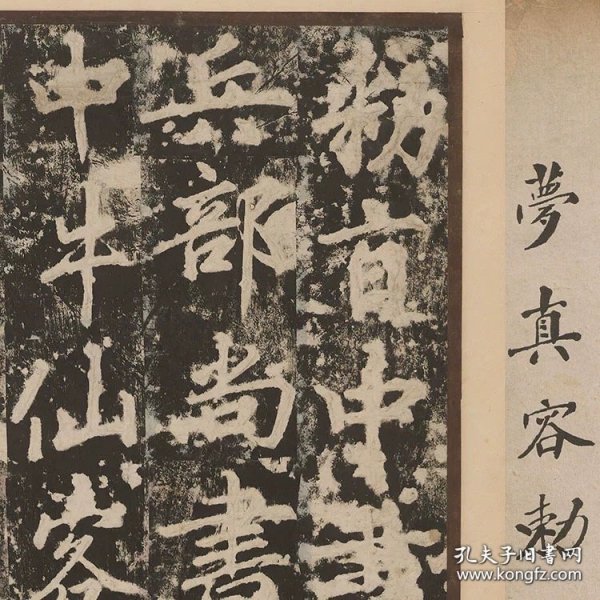 夢真容勅
勑宣中書
兵部尚書
中牛仙客
孔夫子旧書网
www.kongfz.com